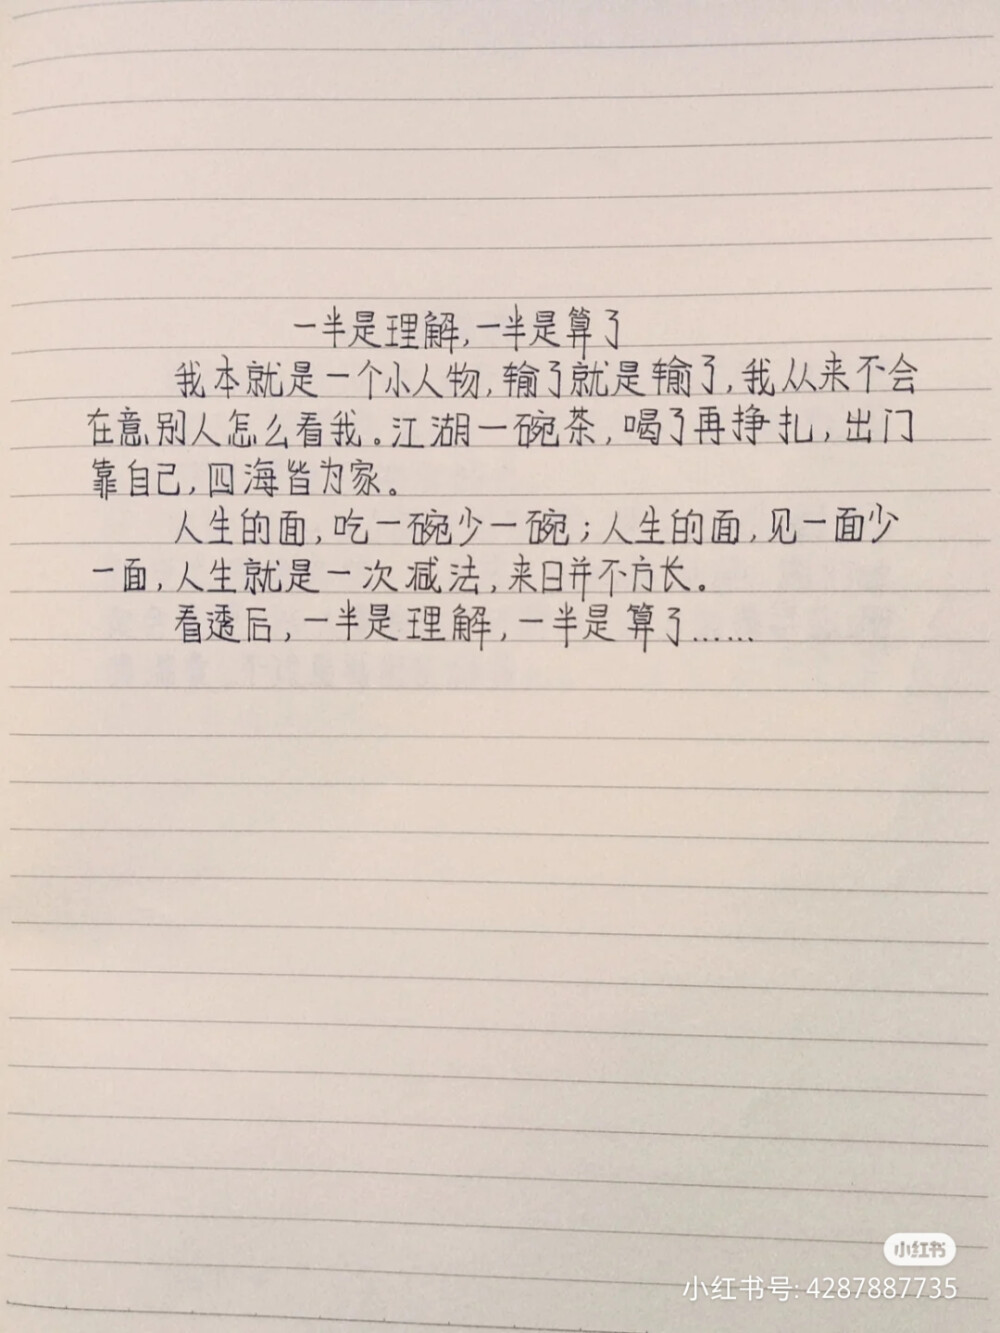 一半是理解,一半是算了
我本就是一个小人物,输了就是输了,我从来不会
在意别人怎么看我。江湖一碗茶,喝了再挣扎,出门
靠自己,四海皆为家。
人生的面,吃一碗少一碗;人生的面,见一面少
一面,人生就是一次减法,来日并不方长。
看透后,一半是理解,一半是算了……
小红书
小红书号: 4287887735